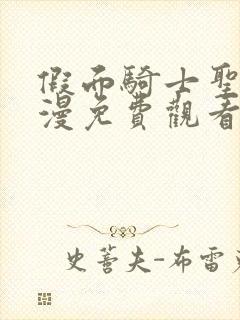 假面騎士聖
漫免費觀看
史蒈夫-布雷